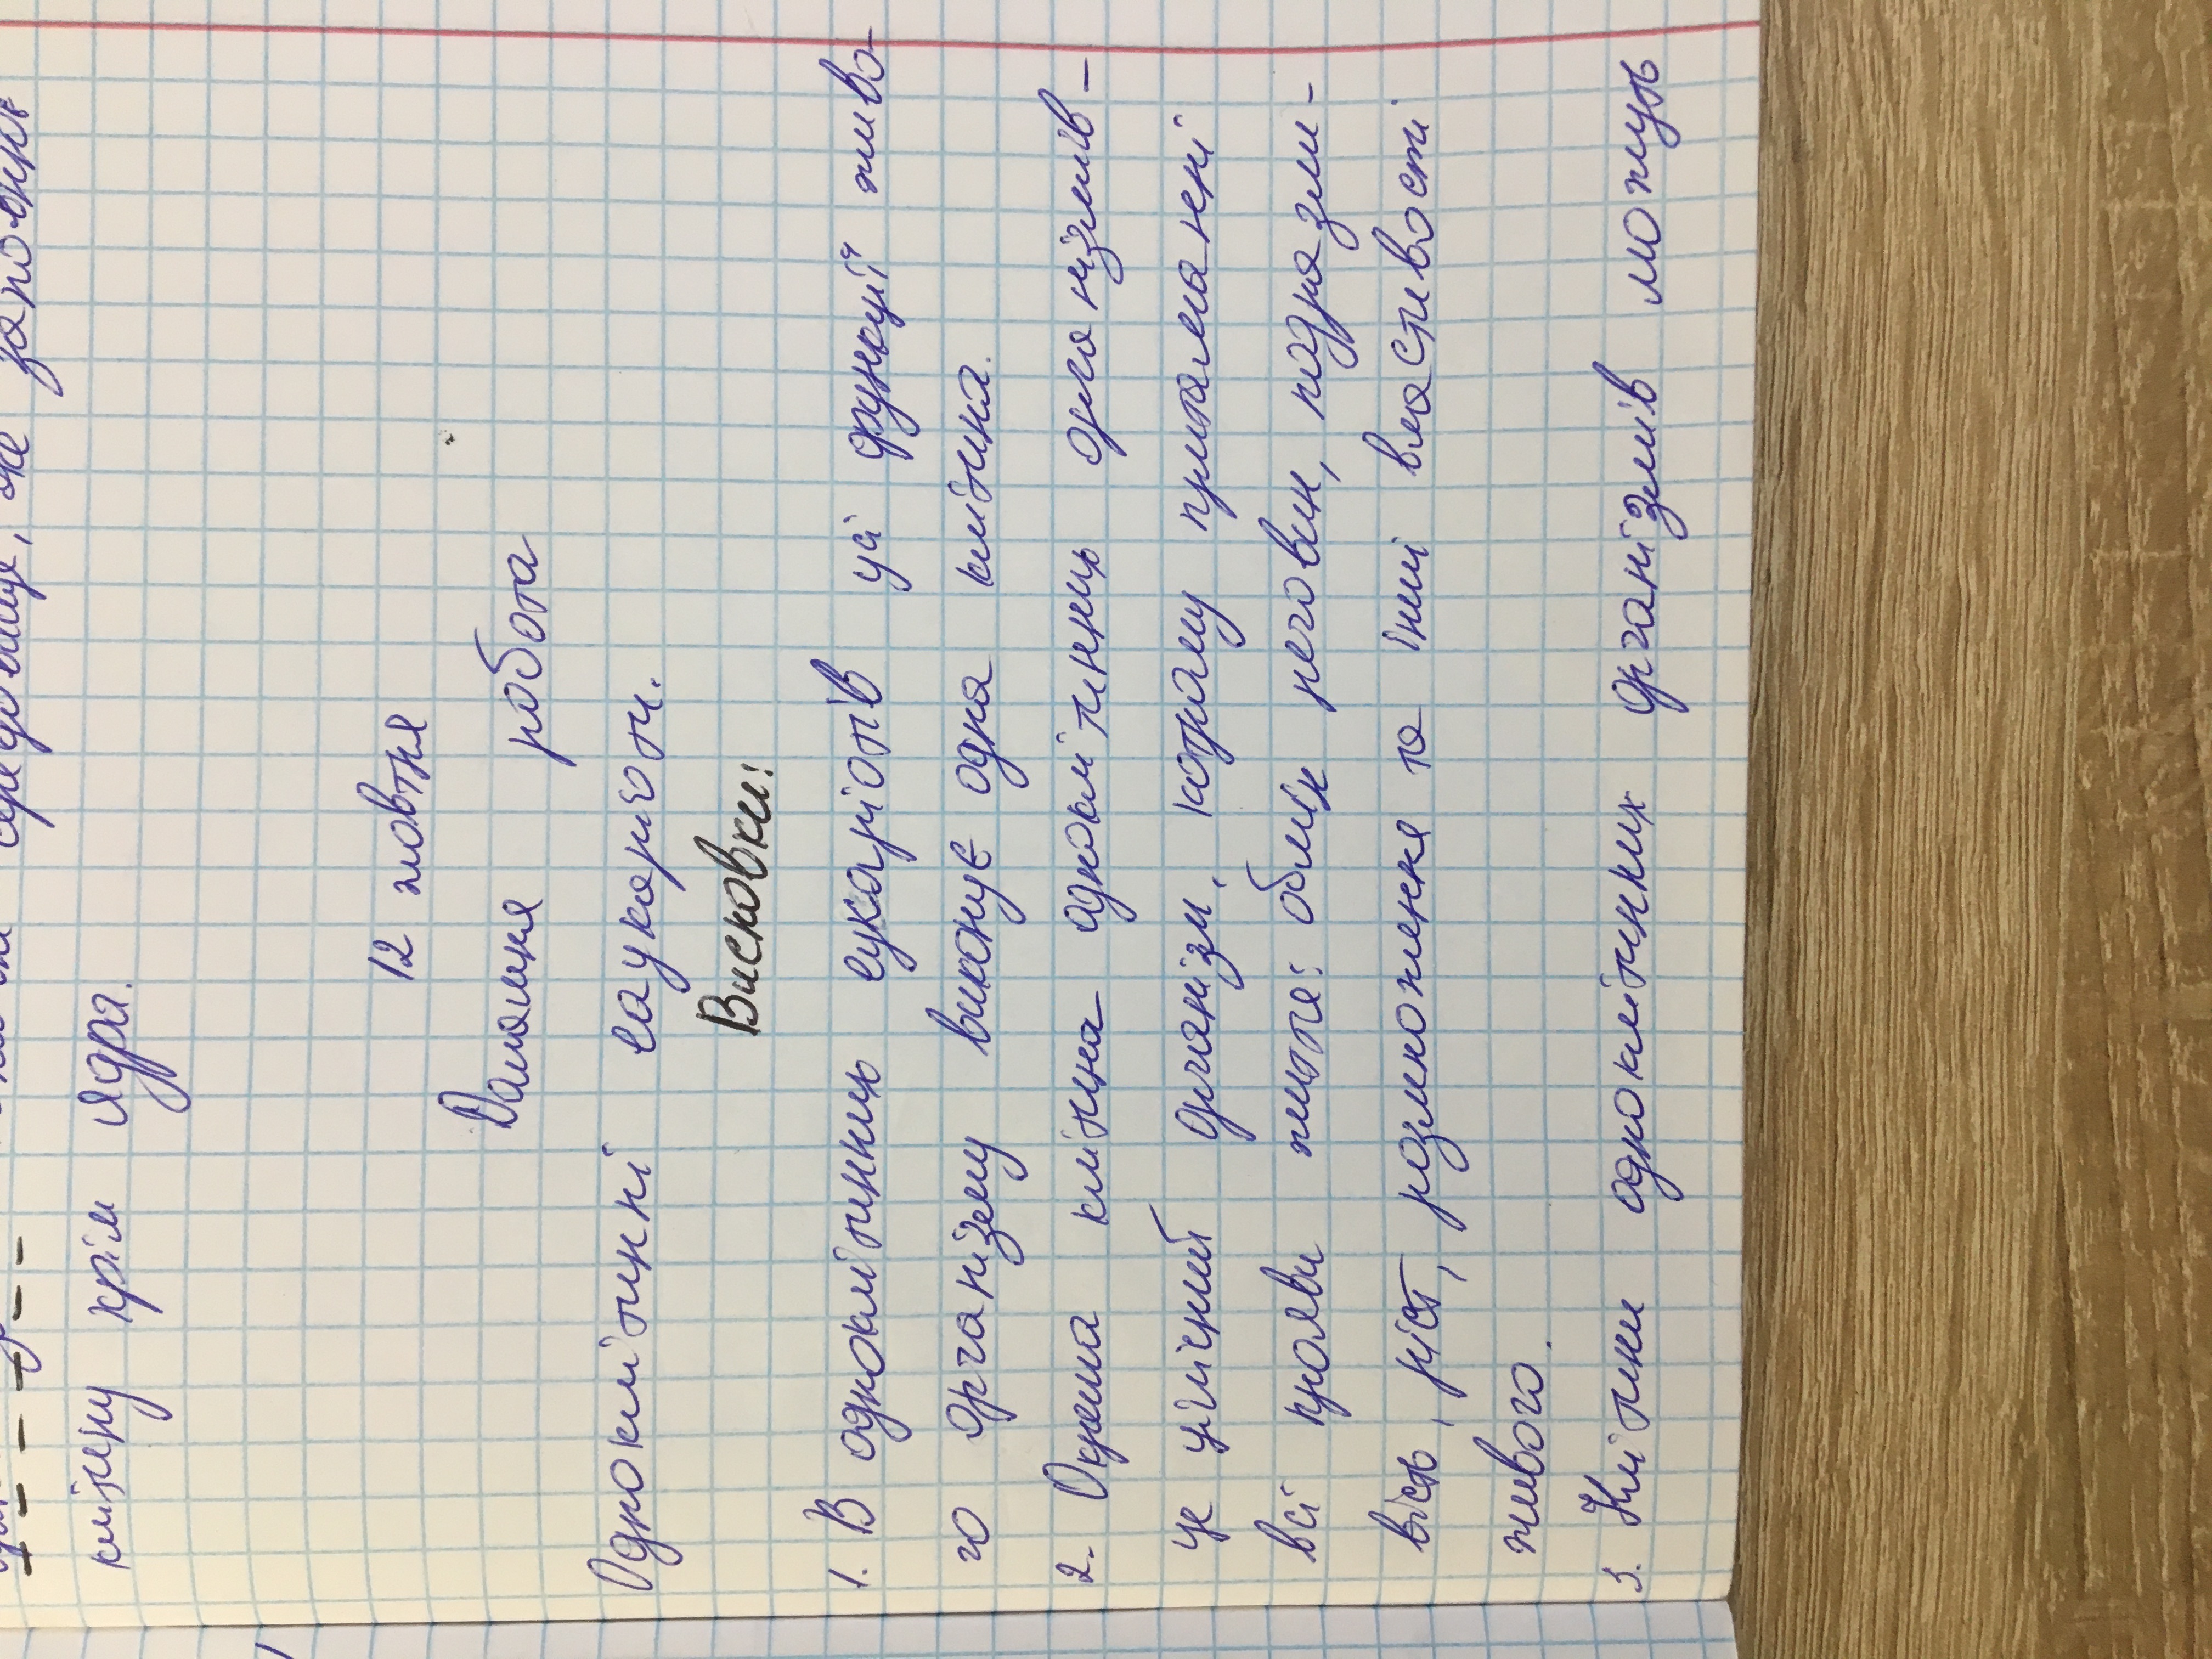 клітину крім ядра.
12 жовтня
Домашня робота
Одноклітинні еаукаріоти.
Висновки:
1. В одноклітинних еукаріотів усі функції живо-
го організму виконує одна клітина.
2. Окрема клітина одноклітинних організмів -
це цілісний організм, котрому притаманні
всі прояви життя: обмін речовин, подразли-
вість, ріст, розмноження та інші властивості
живого.
3. Клітини одноклітинних організмів можуть